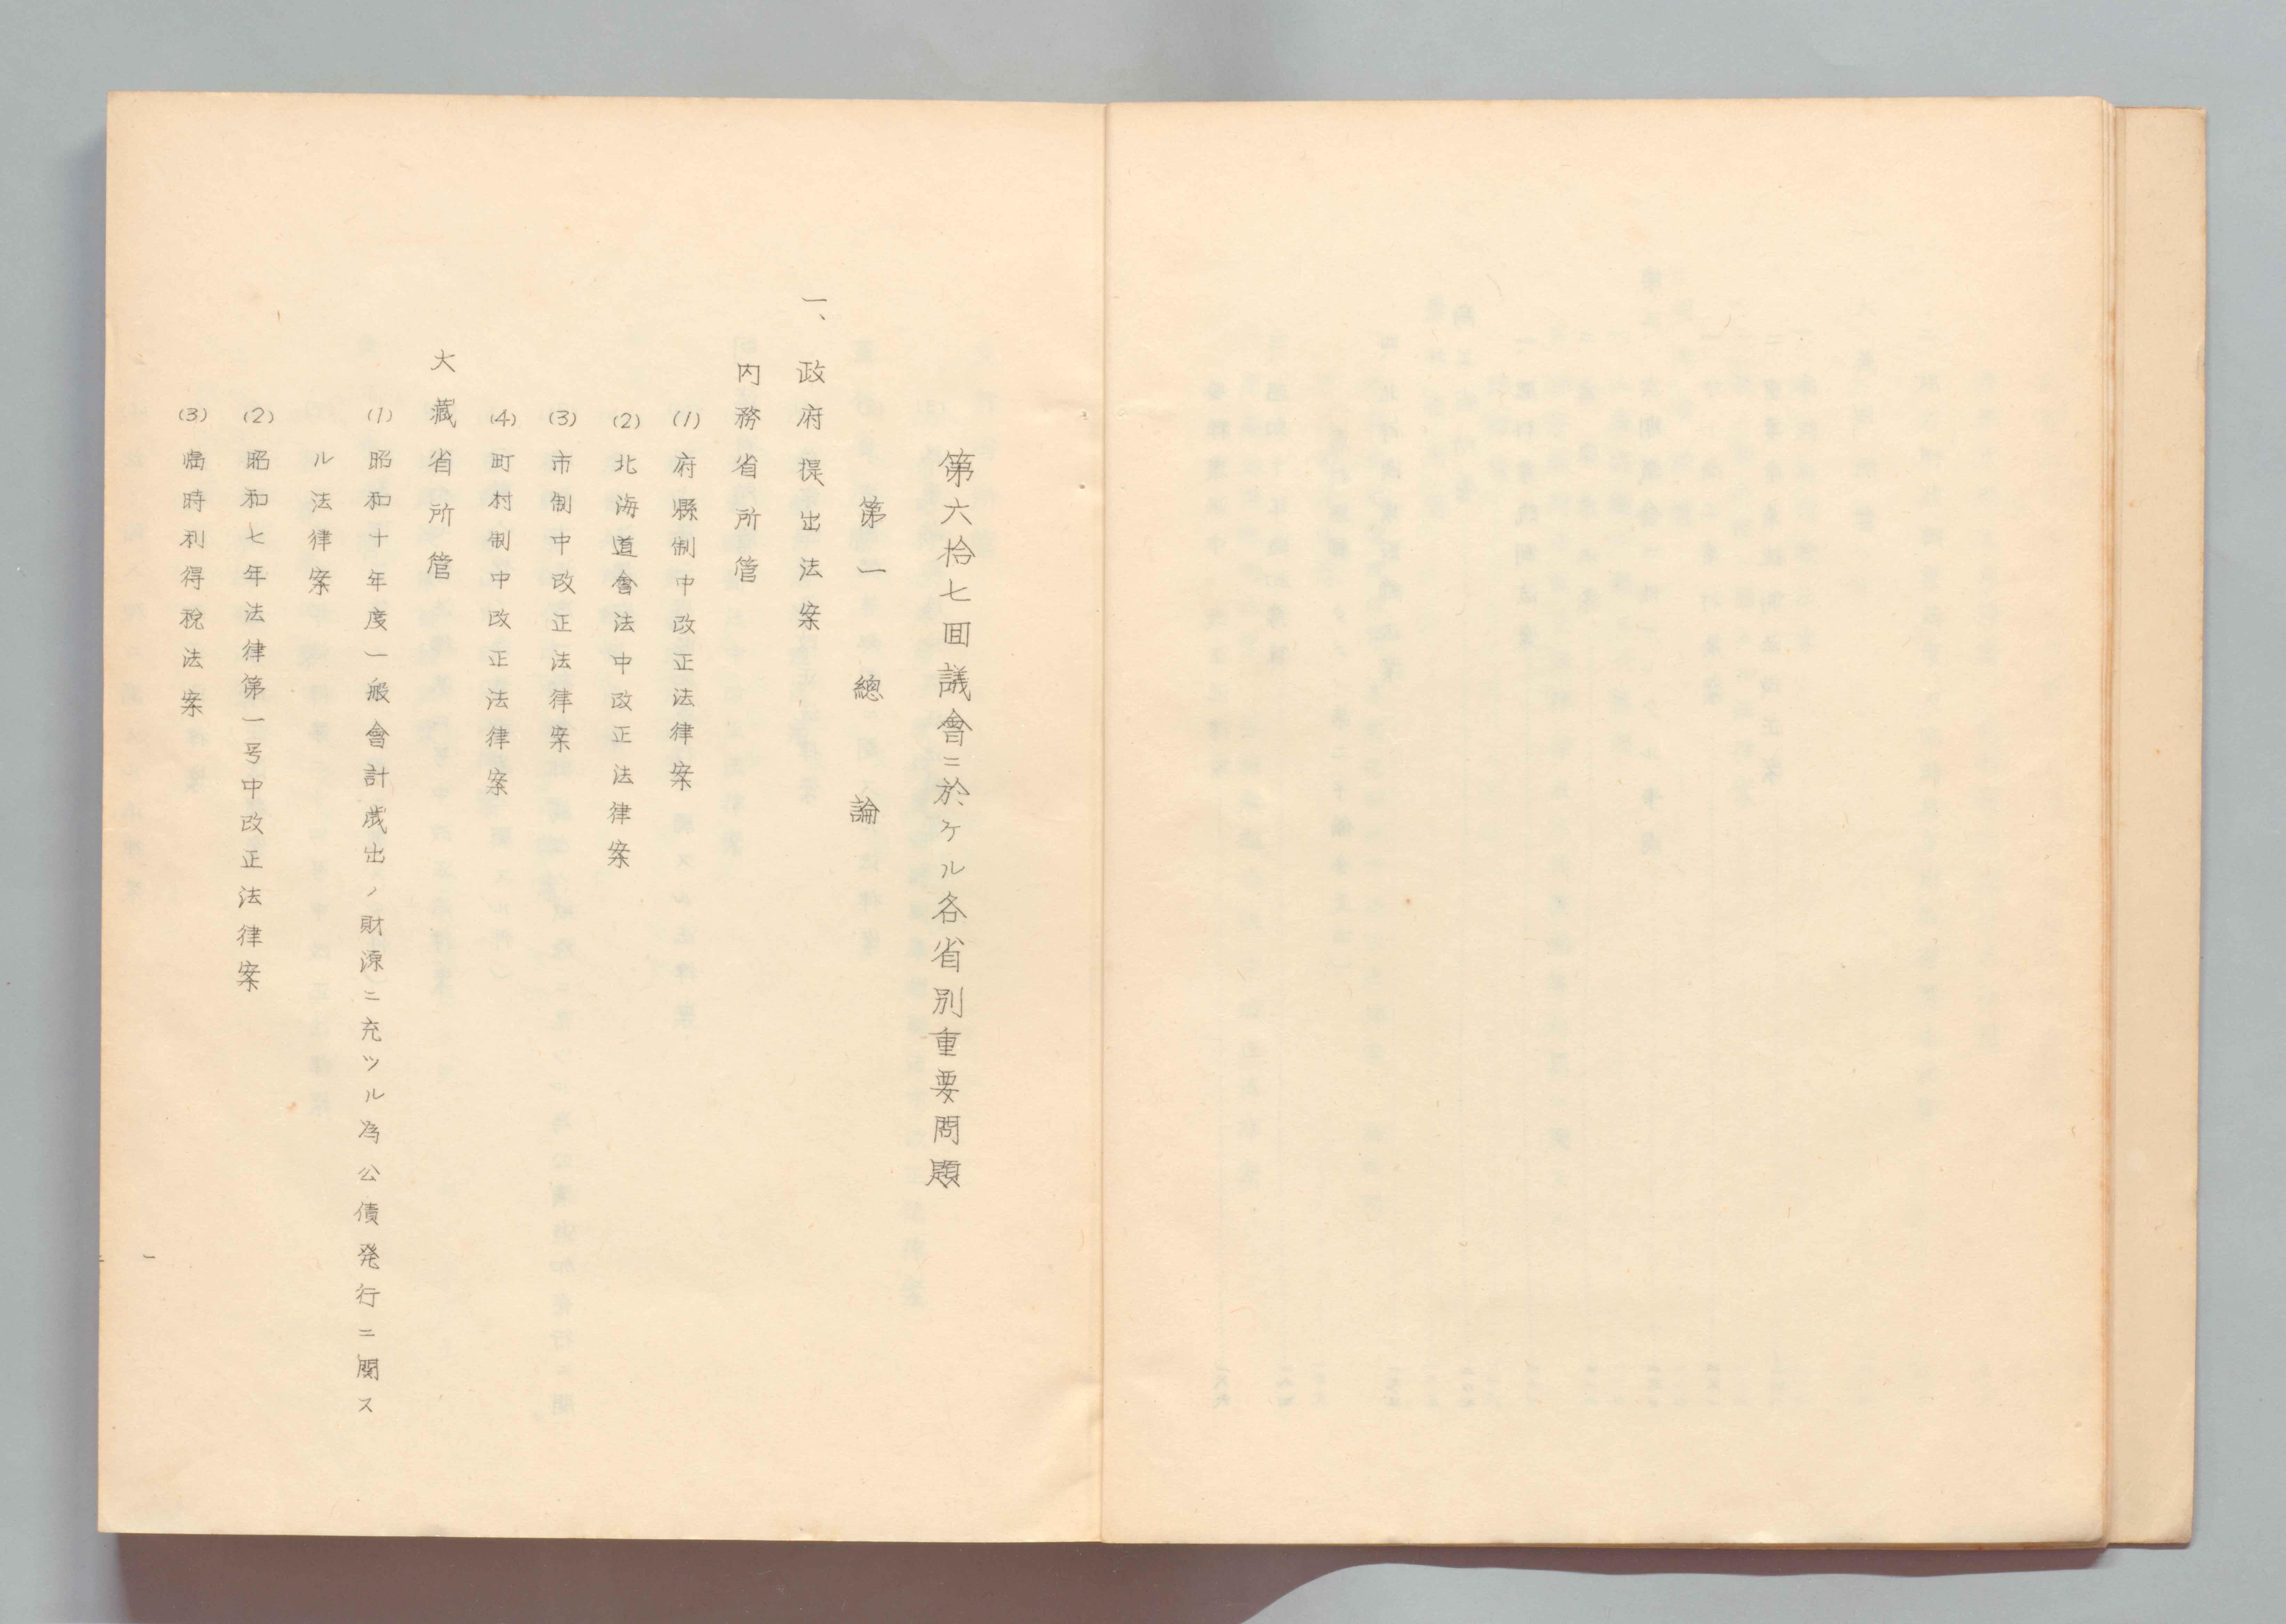 第六拾七囬議會ニ於ケル各省別重要問題
第一 總論
一、政府提出法案
内務省所管
(1) 府縣制中改正法律案
(2) 北海道會法中改正法律案
(3) 市制中改正法律案
(4) 町村制中改正法律案
大藏省所管
(1) 昭和十年度一般會計歳出ノ財源ニ充ツル為公債発行ニ関ス
ル法律案
(2) 昭和七年法律第一号中改正法律案
(3) 臨時利得税法案
一